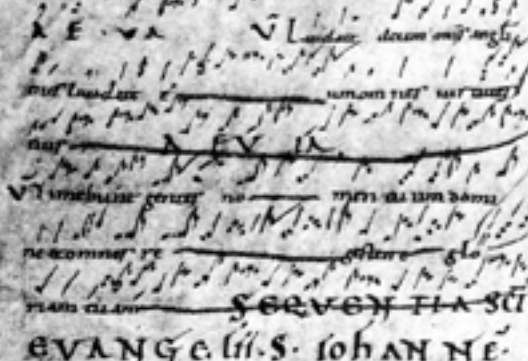 A E · VA V̄ Laudate deum om̄s angli
eius laudate e um omnes uir tutes
eius A EV IA
V̄ Timebunt gentes no men tuum domi
ne et omnes re ges terre glo
riam tuam SEQVENTIA SC̄I
EVANGELII · S · IOHANNE̅